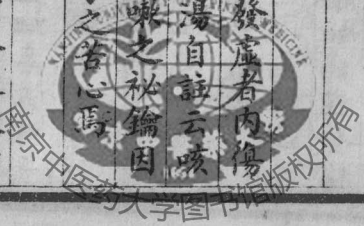 發虛者内傷
湯自註云咳
嗽之祕鑰因
之苦心焉
南京中医药大学图书馆版权所有